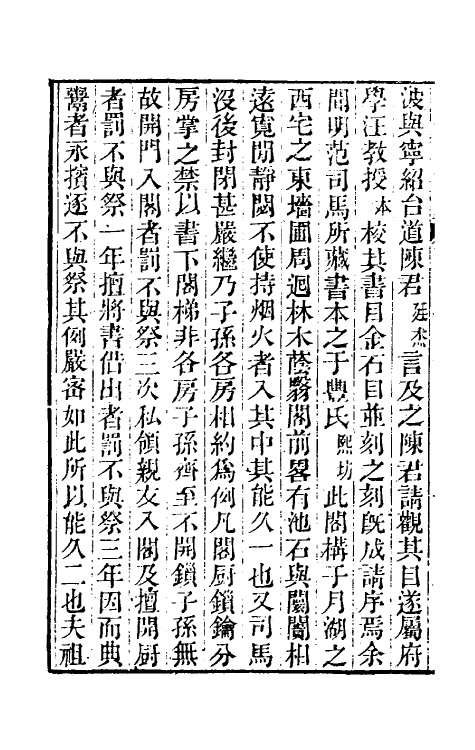 波與寧紹台道陳君廷杰言及之陳君請觀其目遂屬府
學汪教授本校其書目金石目並刻之刻旣成請序焉余
聞明范司馬所藏書本之于豐氏熙坊此閣構于月湖之
西宅之東墻圃周迴林木蔭翳閣前畧有池石與闤闠相
遠寬閒靜閟不使持烟火者入其中其能久一也又司馬
沒後封閉甚嚴繼乃子孫各房相約爲例凡閣厨鎖鑰分
房掌之禁以書下閣梯非各房子孫齊至不開鎖子孫無
故開門入閣者罰不與祭三次私領親友入閣及擅開厨
者罰不與祭一年擅將書借出者罰不與祭三年因而典
鬻者永擯逐不與祭其例嚴密如此所以能久二也夫祖